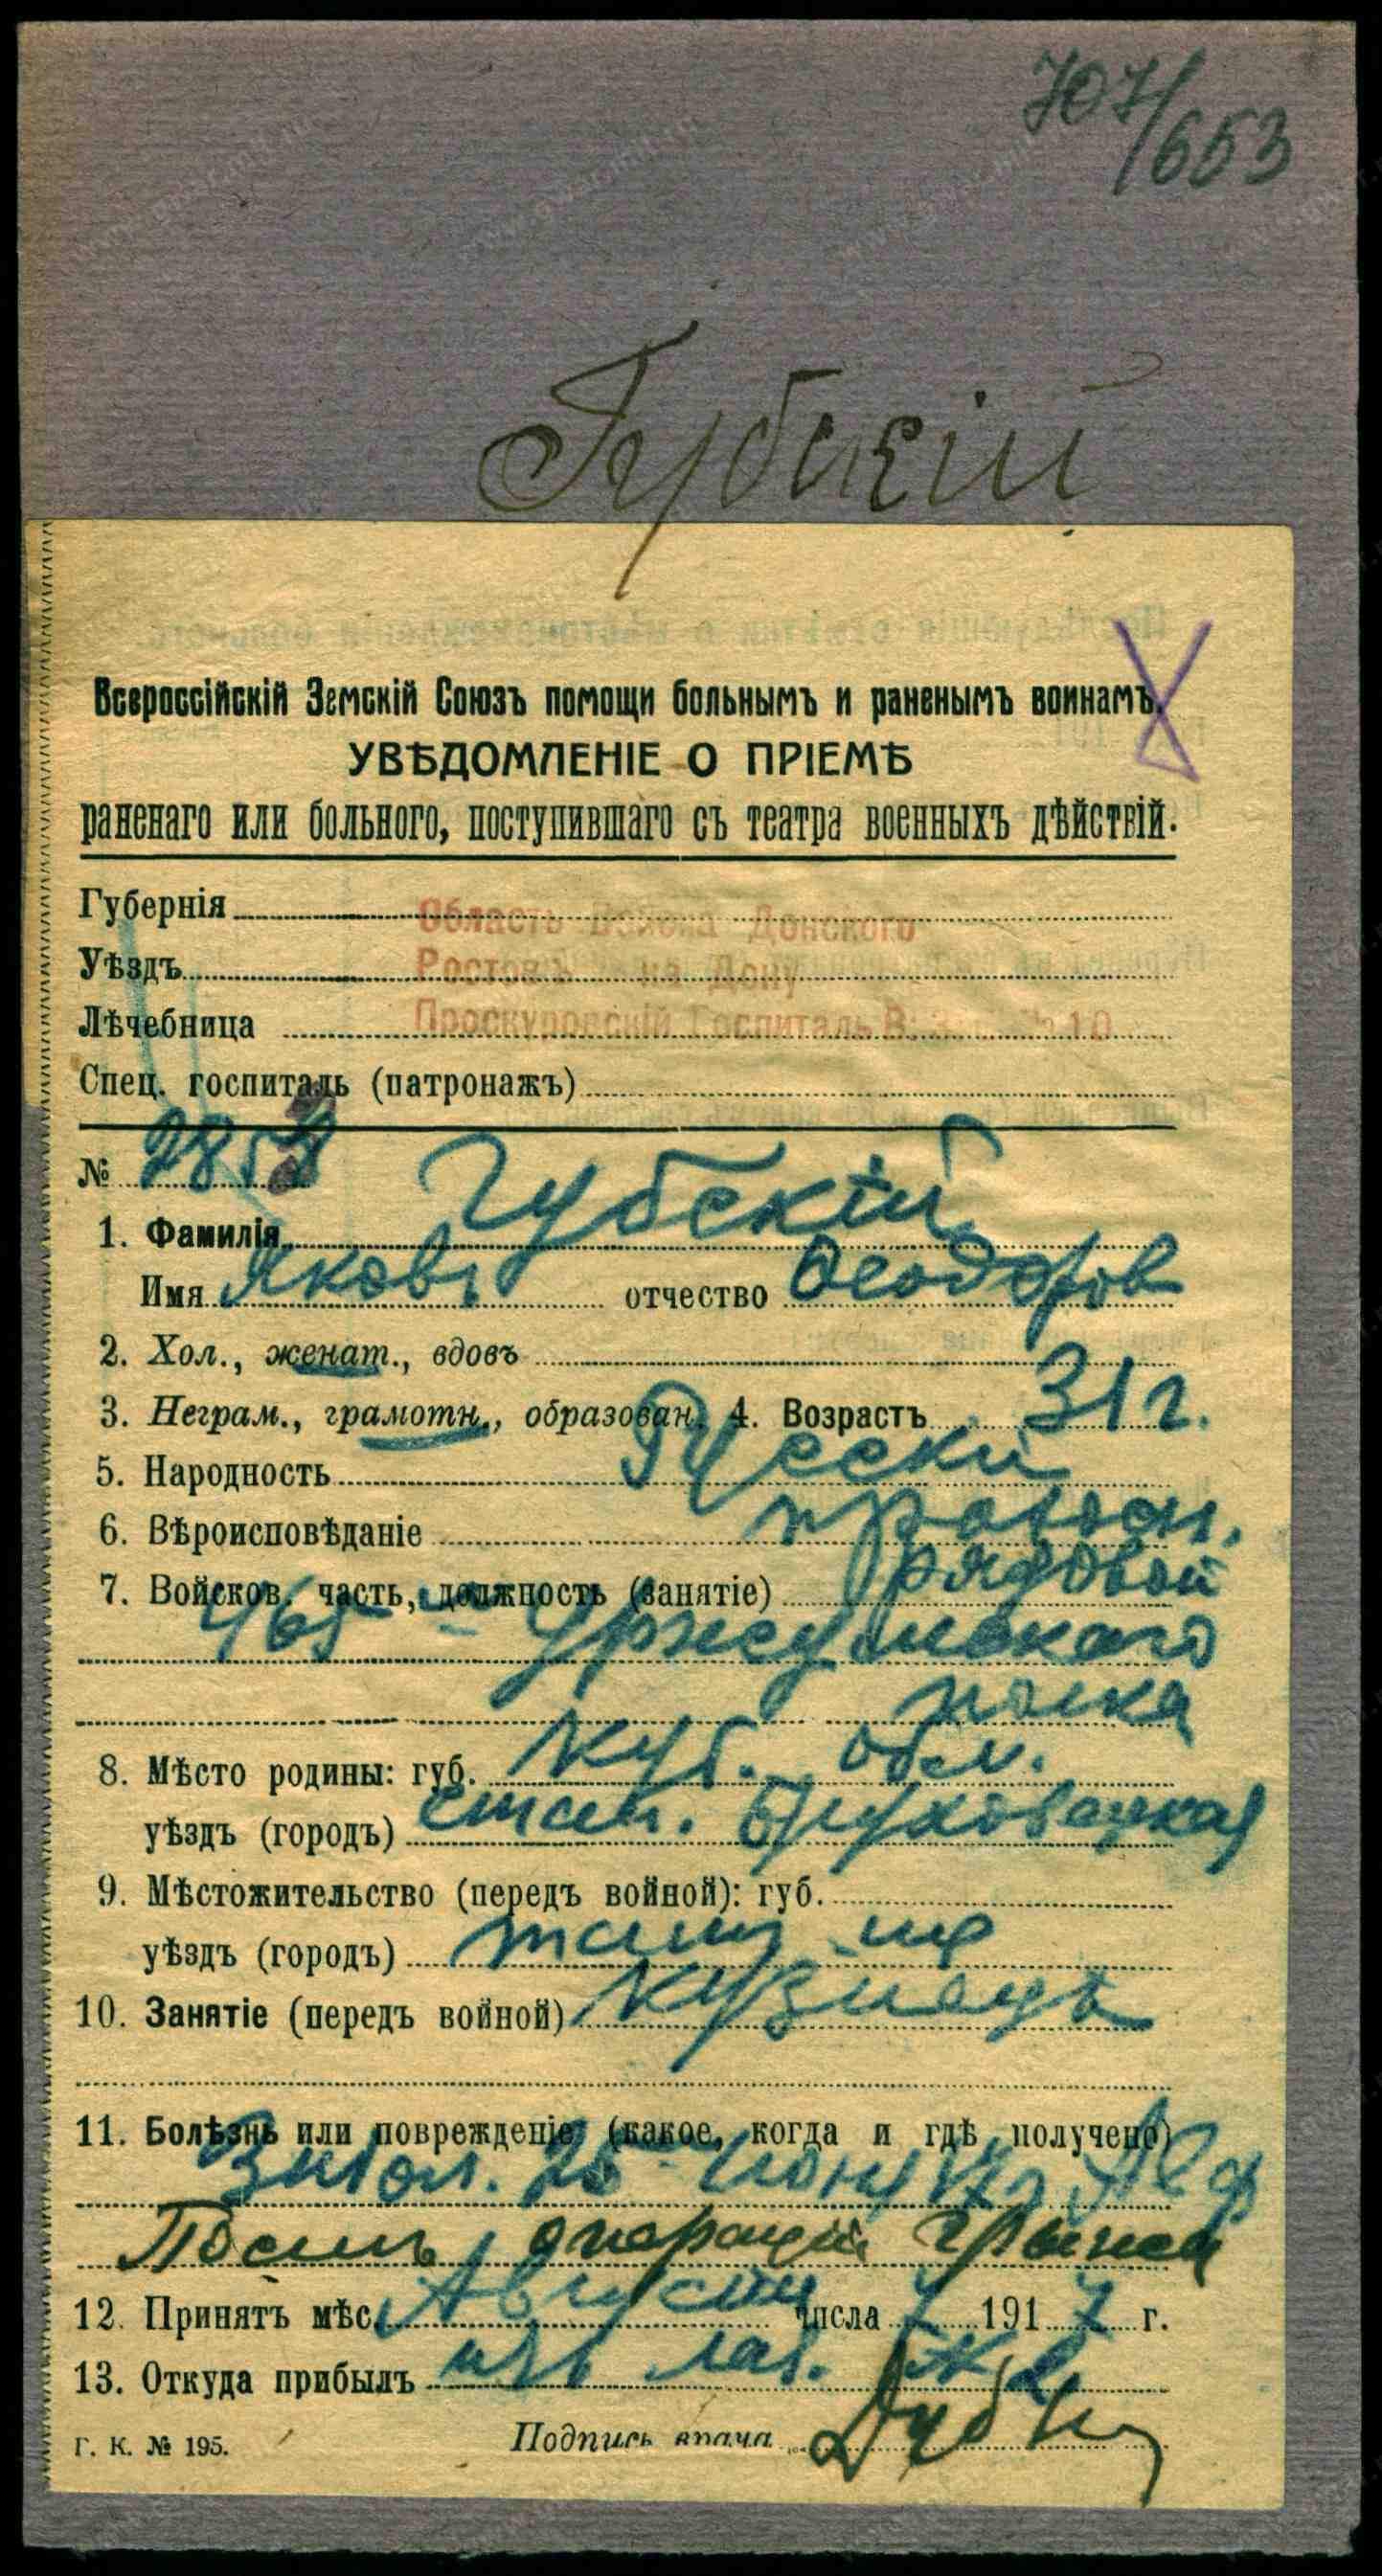 707/653
Губскій
Всероссійскій Земскій Союзъ помощи больнымъ и раненымъ воинамъ.
УВѢДОМЛЕНІЕ О ПРІЕМѢ
раненаго или больного, поступившаго съ театра военныхъ дѣйствій.
Губернія Область Войска Донского
Уѣздъ Ростовъ на Дону
Лѣчебница Проскуровскій Госпиталь 10
Спец. госпиталь (патронажъ)
№
1. Фамилія Губскій
Имя Яковъ отчество Ѳеодоров
2. Хол., женат., вдовъ
3. Неграм., грамотн., образован. 4. Возрастъ 31 г.
5. Народность Русскій
6. Вѣроисповѣданіе правосл.
7. Войсков. часть, должность (занятіе) рядовой
465 Уржумскаго
полка
8. Мѣсто родины: губ. Куб. обл.
уѣздъ (городъ) стан. Брюховецкая
9. Мѣстожительство (передъ войной): губ.
уѣздъ (городъ) тамъ же
10. Занятіе (передъ войной) Кузнецъ
11. Болѣзнь или поврежденіе (какое, когда и гдѣ получено)
Забол. 25 Июня 17 г.
Послѣ операціи грыжи
12. Принятъ мѣс. Августа числа 7 1917 г.
13. Откуда прибылъ изъ лаз. № 2
Г. К. № 195. Подпись врача